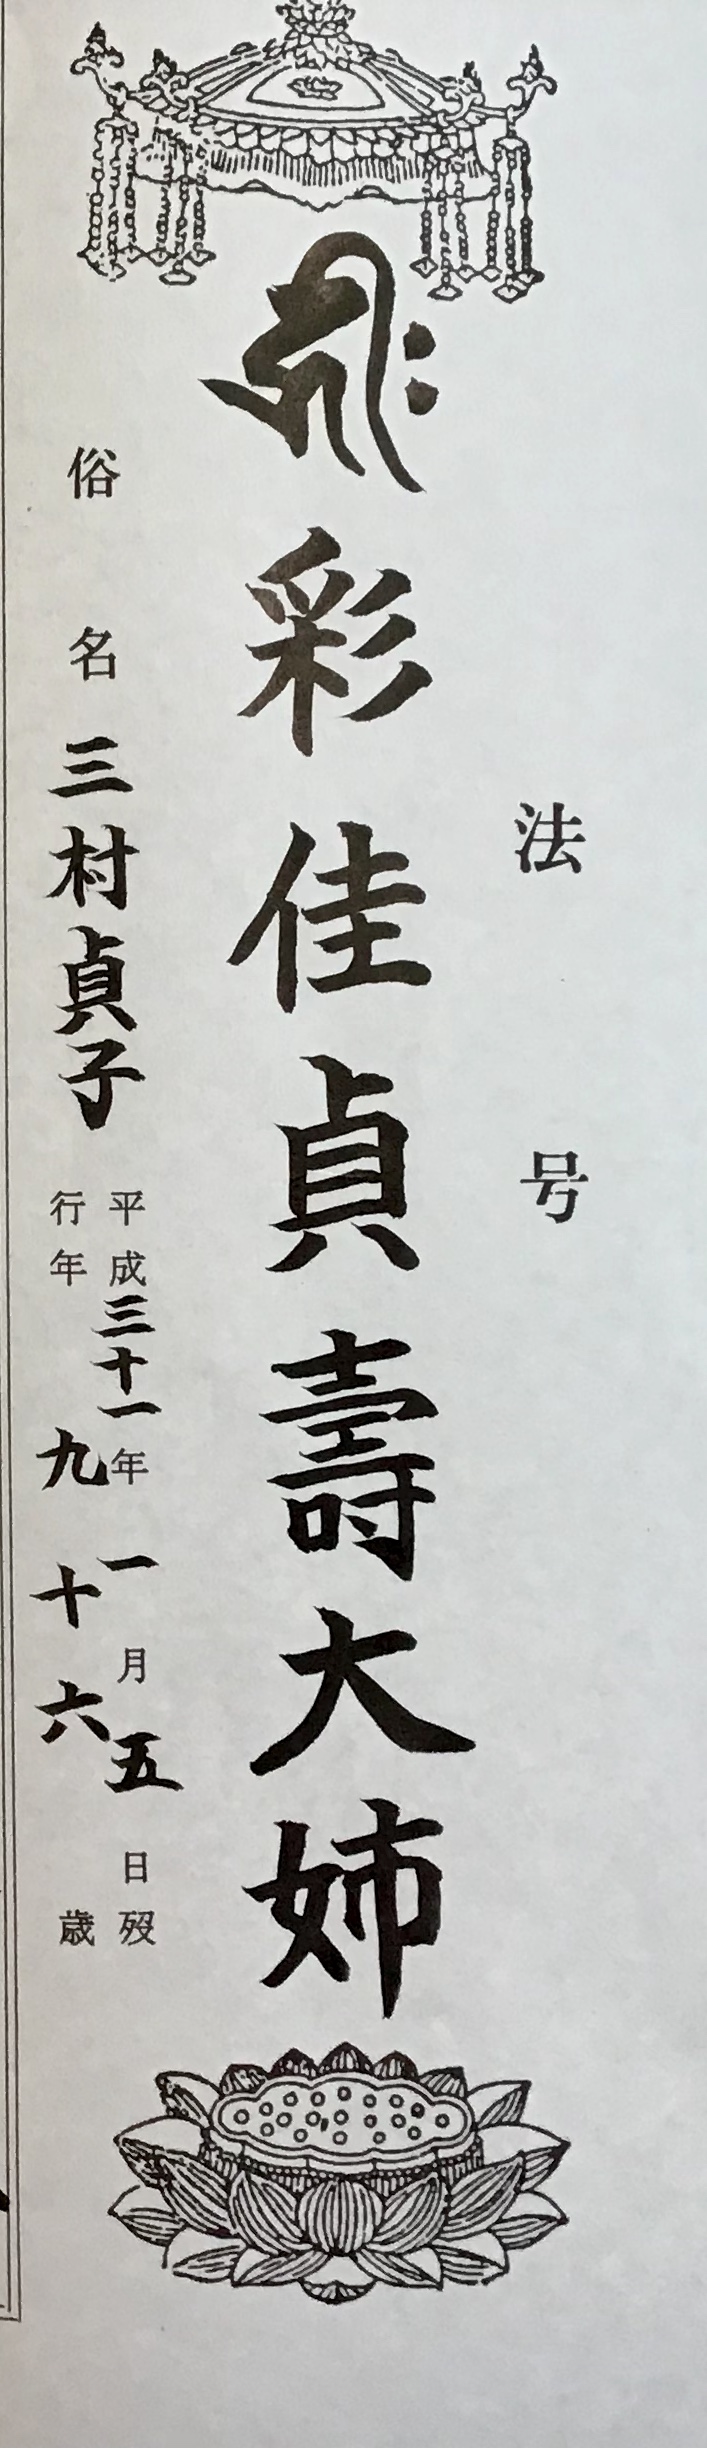 法号
𑖮𑖿𑖨𑖱𑖾
彩佳貞壽大姉
俗名三村貞子
平成三十一年一月五日歿
行年九十六歳